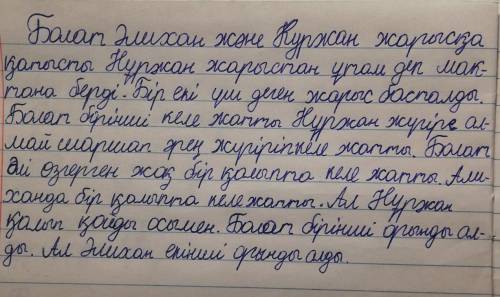 Болат Әлихан және Нұржан жарысқа
қатысты Нұржан жарыстан ұтам деп мақ-
тана берді. Бір екі үш деген жарыс басталды.
Болат бірінші келе жатты Нұржан жүгіре ал-
май шаршап әрең жүгіріпкеле жатты. Болат
әлі өзгерген жоқ бір қалыпта келе жатты. Али-
ханда бір қалыпта кележатты. Ал Нұржан
қалып қойды осымен. Болат бірінші орынды ал-
ды. Ал Әлихан екінші орынды алды.